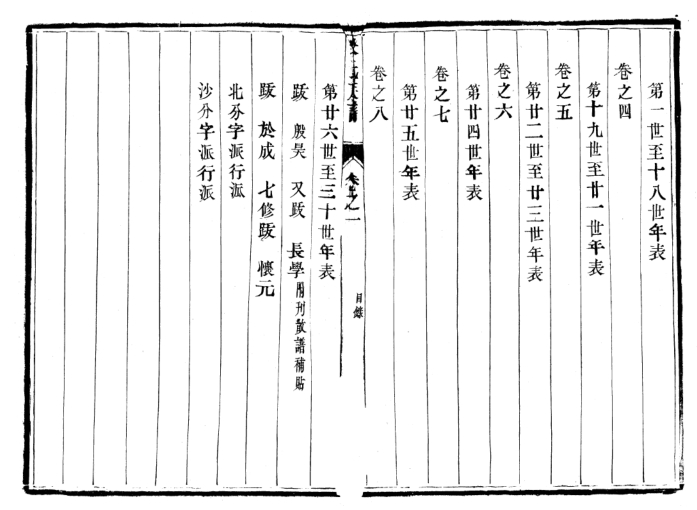 第一世至十八世年表
卷之四
第十九世至廿一世年表
卷之五
第廿二世至廿三世年表
卷之六
第廿四世年表
卷之七
第廿五世年表
卷之八
卷之一
目錄
第廿六世至三十世年表
跋 殷昊 又跋 長學用刊散譜補貼
跋 於成 七修跋 懷元
北分字派行派
沙分字派行派